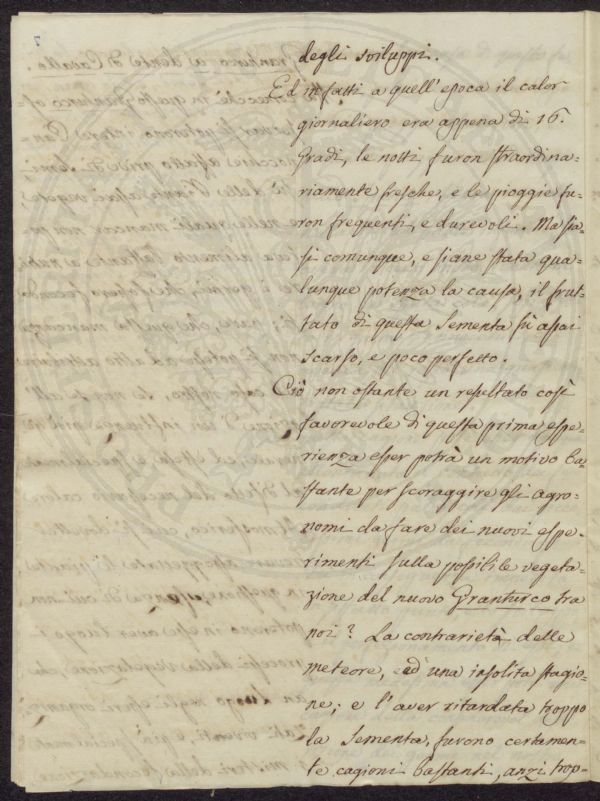 degli sviluppi.
Ed in fatti a quell'epoca il calor
giornaliero era appena di 16.
Gradi, le notti furon straordina=
riamente fresche, e le pioggie fu=
ron frequenti, e durevoli. Ma sia=
si comunque, e siane stata qua=
lunque potenza la causa, il frut=
tato di questa sementa fù assai
scarso, e poco perfetto.
Ciò non ostante un resultato così
favorevole di questa prima espe=
rienza esser potrà un motivo ba=
stante per scoraggire gli agro=
nomi da fare dei nuovi espe=
rimenti sulla possibile vegeta=
zione del nuovo Granturco tra
noi? La contrarietà delle
meteore, ed una insolita stagio=
ne; e l'aver ritardata troppo
la sementa, furono certamen=
te cagioni bastanti, anzi trop=